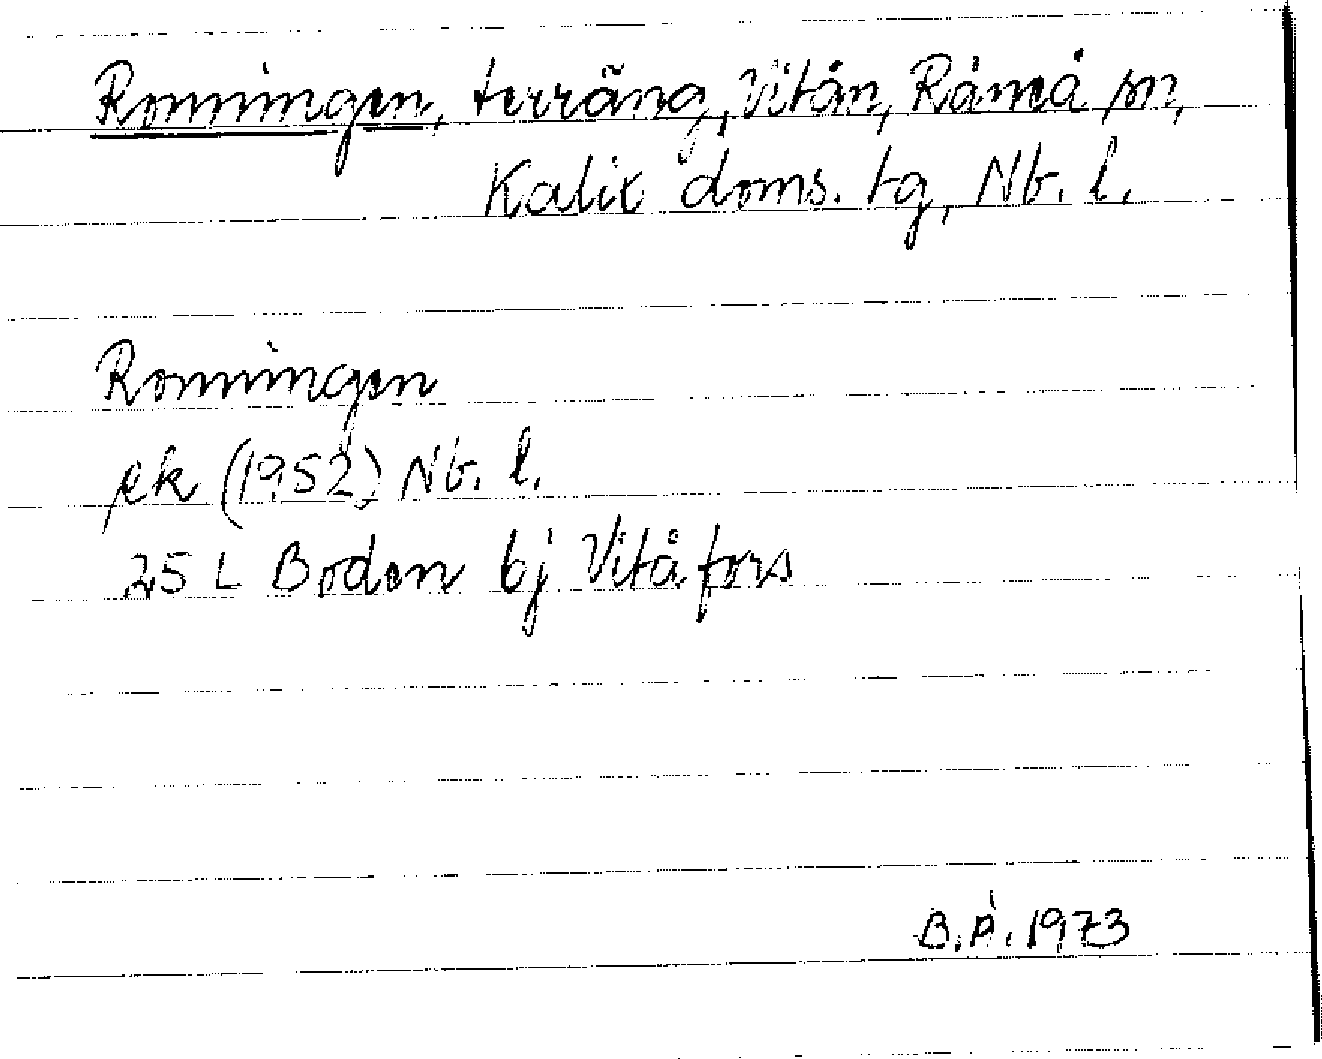 Ronningen, terräng, Vitån, Råneå sn,
Kalix doms. tg, Nb. l.
Ronningen
ek (1952) Nb. l.
25 L Boden bj Vitåfors
B.Å. 1973